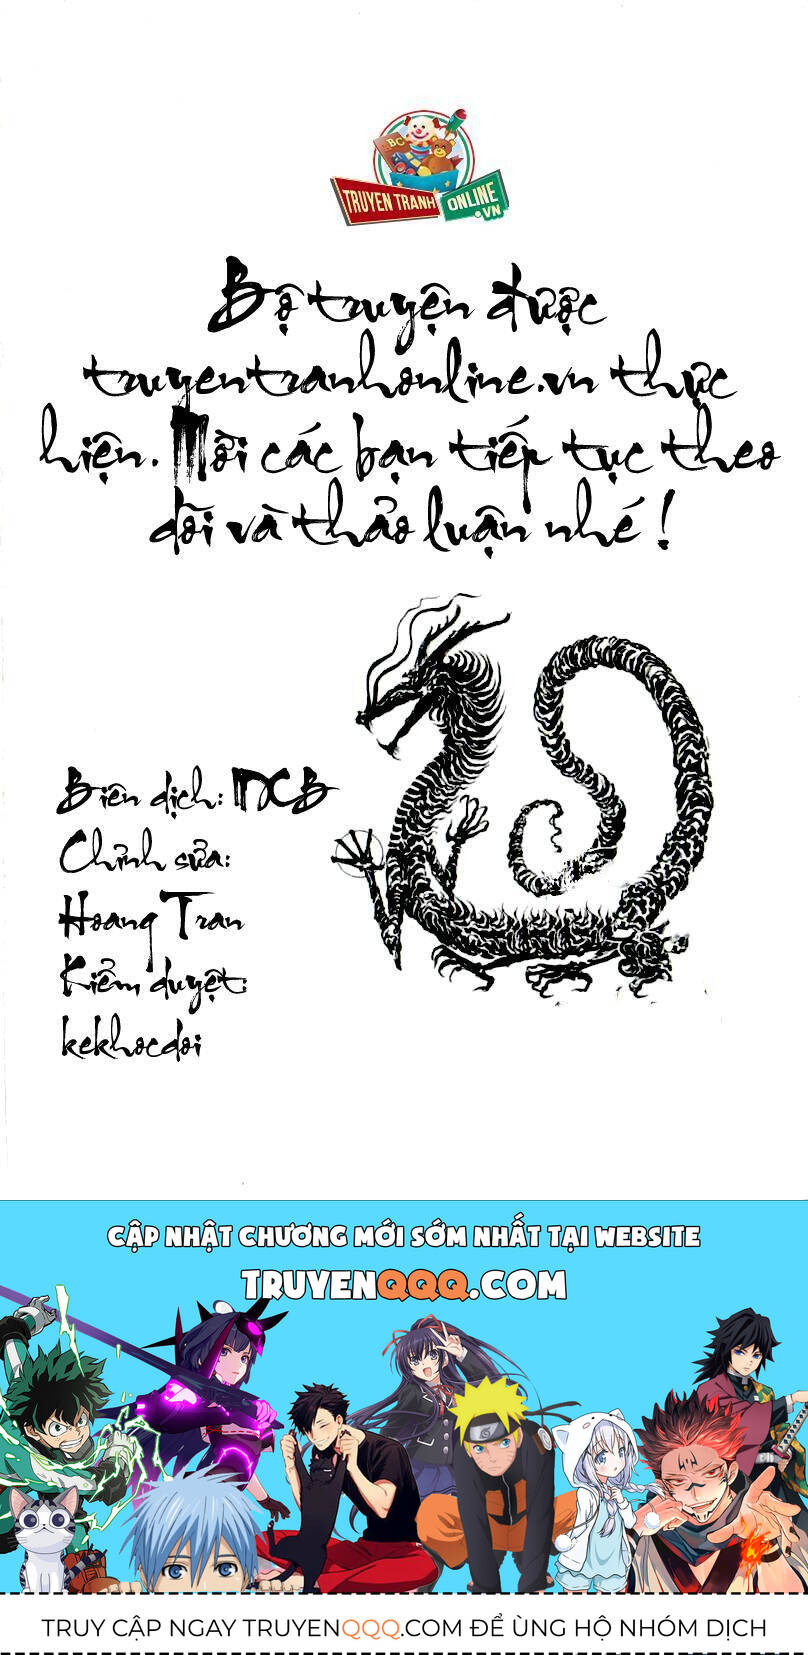 ABC
TRUYEN TRANH ONLINE
.VN
Bộ truyện được
truyentranhonline.vn thực
hiện. Mời các bạn tiếp tục theo
dõi và thảo luận nhé !
Biên dịch: NCB
Chỉnh sửa:
Hoang Tran
Kiểm duyệt:
kekhocdoi
CẬP NHẬT CHƯƠNG MỚI SỚM NHẤT TẠI WEBSITE
TRUYENQQQ.COM
TRUY CẬP NGAY TRUYENQQQ.COM ĐỂ ÙNG HỘ NHÓM DỊCH